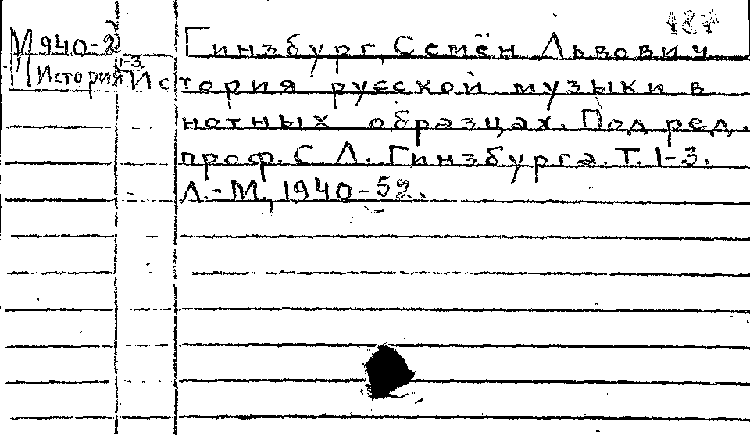 М 940-2
История 1-3
Гинзбург, Семён Львович
История русской музыки в
нотных образцах. Под ред.
проф. С. Л. Гинзбурга. Т. 1-3.
Л.-М., 1940-52.